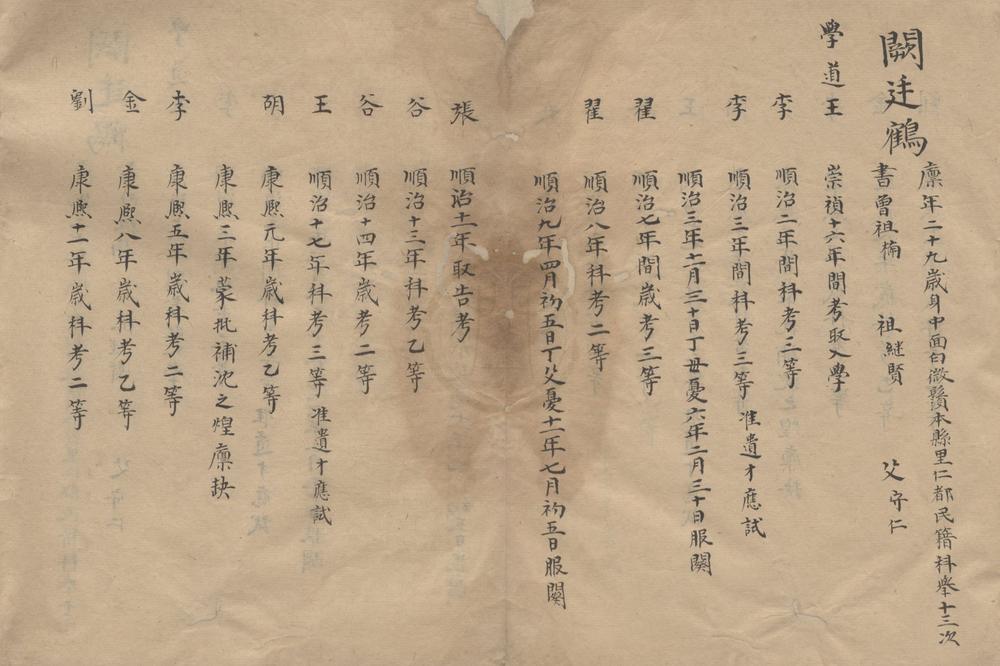 闕廷鶴
廪年二十九歲身中面白微鬚本縣里仁都民籍科舉十三次
書曾祖楠 祖繼賢 父守仁
學道王 崇禎十六年間考取入學
李 順治二年間科考三等
李 順治三年間科考三等准遺才應試
順治三年十一月三十日丁毋憂六年二月三十日服闋
翟 順治七年間歲考三等
翟 順治八年科考二等
順治九年四月初五日丁父憂十一年七月初五日服闋
張 順治十一年取告考
谷 順治十三年科考乙等
谷 順治十四年歲考二等
王 順治十七年科考三等准遺才應試
胡 康熈元年歲科考乙等
康熈三年蒙批補沈之煌廪缺
李 康熈五年歲科考二等
金 康熈八年歲科考乙等
劉 康熈十一年歲科考二等